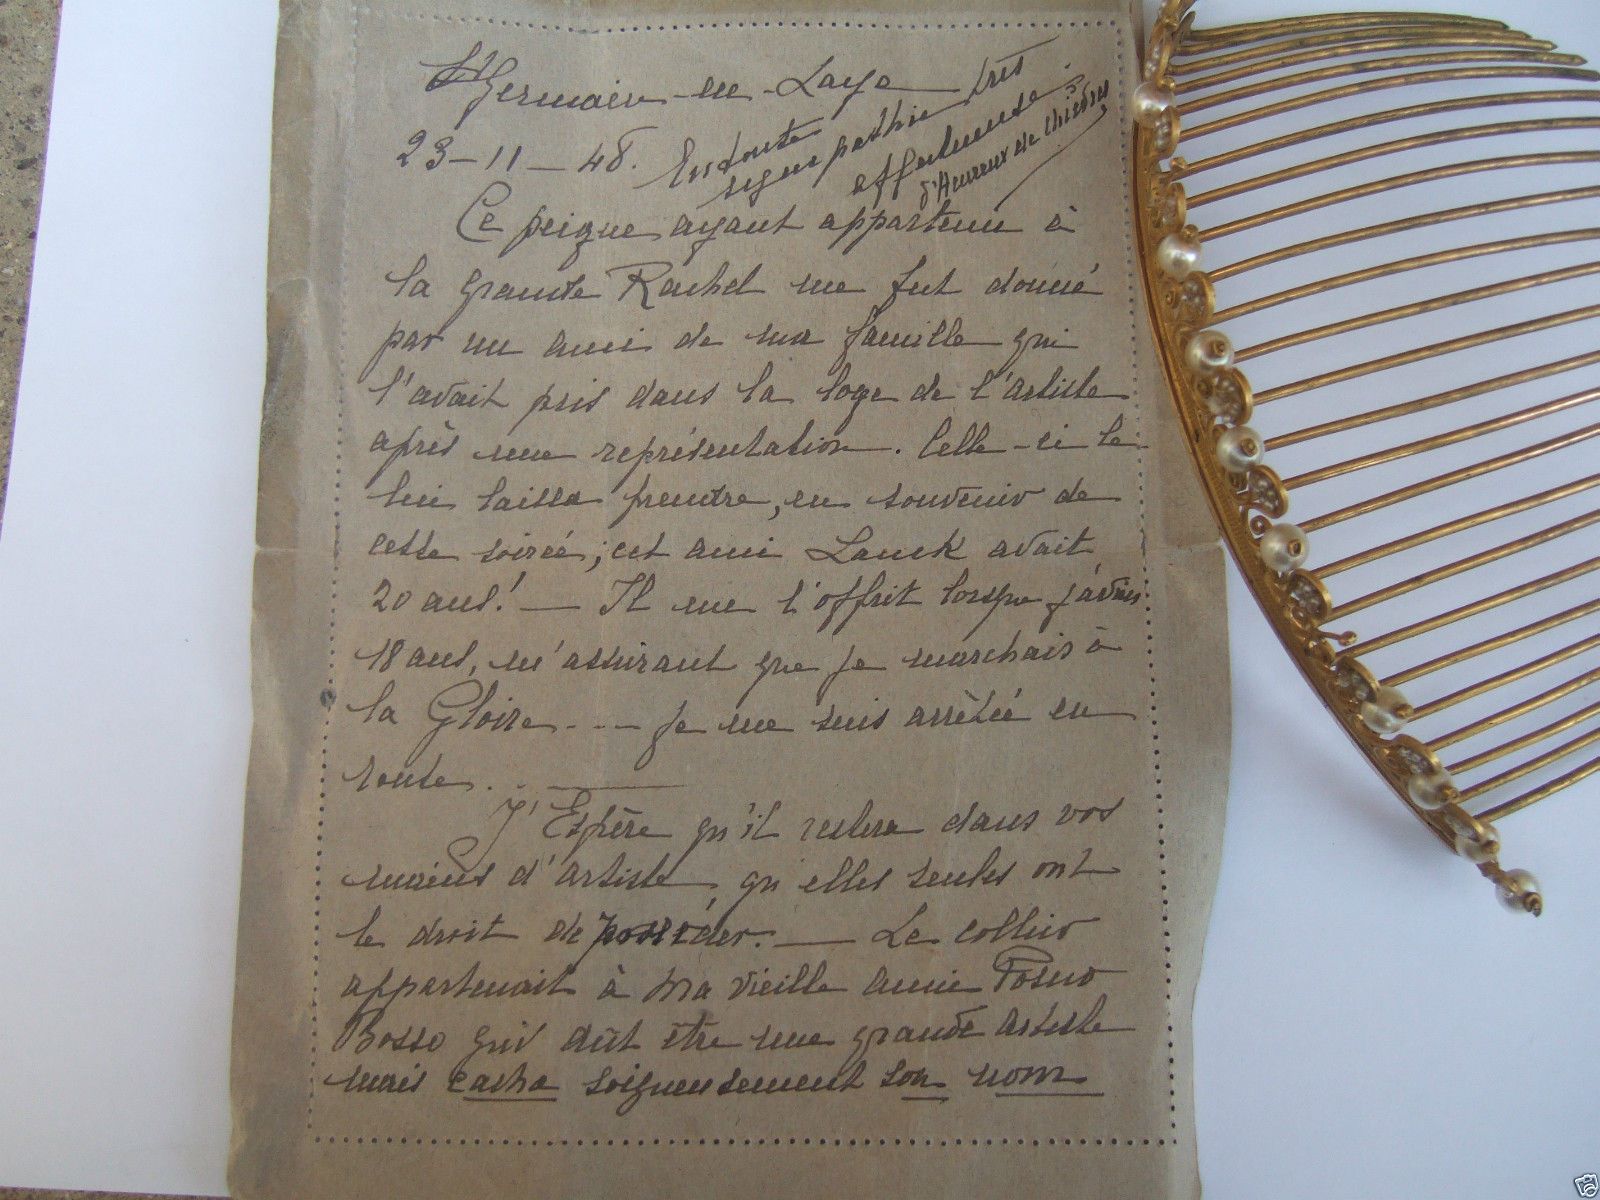 St Germain-en-Laye
23-11-48.
En toute
sympathie très
affectueuse.
Ce peigne ayant appartenu à
la grande Rachel me fut donné
par un ami de ma famille qui
l'avait pris dans la loge de l'artiste
après une représentation. Celle-ci le
lui laissa prendre, en souvenir de
cette soirée; cet ami Lanck avait
20 ans! — Il me l'offrit lorsque j'avais
18 ans, m'assurant que je marchais à
la Gloire --- je me suis arrêtée en
route.
J'Espère qu'il restera dans vos
mains d'artiste, qu'elles seules ont
le droit de posséder. — Le collier
appartenait à ma vieille amie
Bosso qui dût être une grande artiste
mais cacha soigneusement son nom